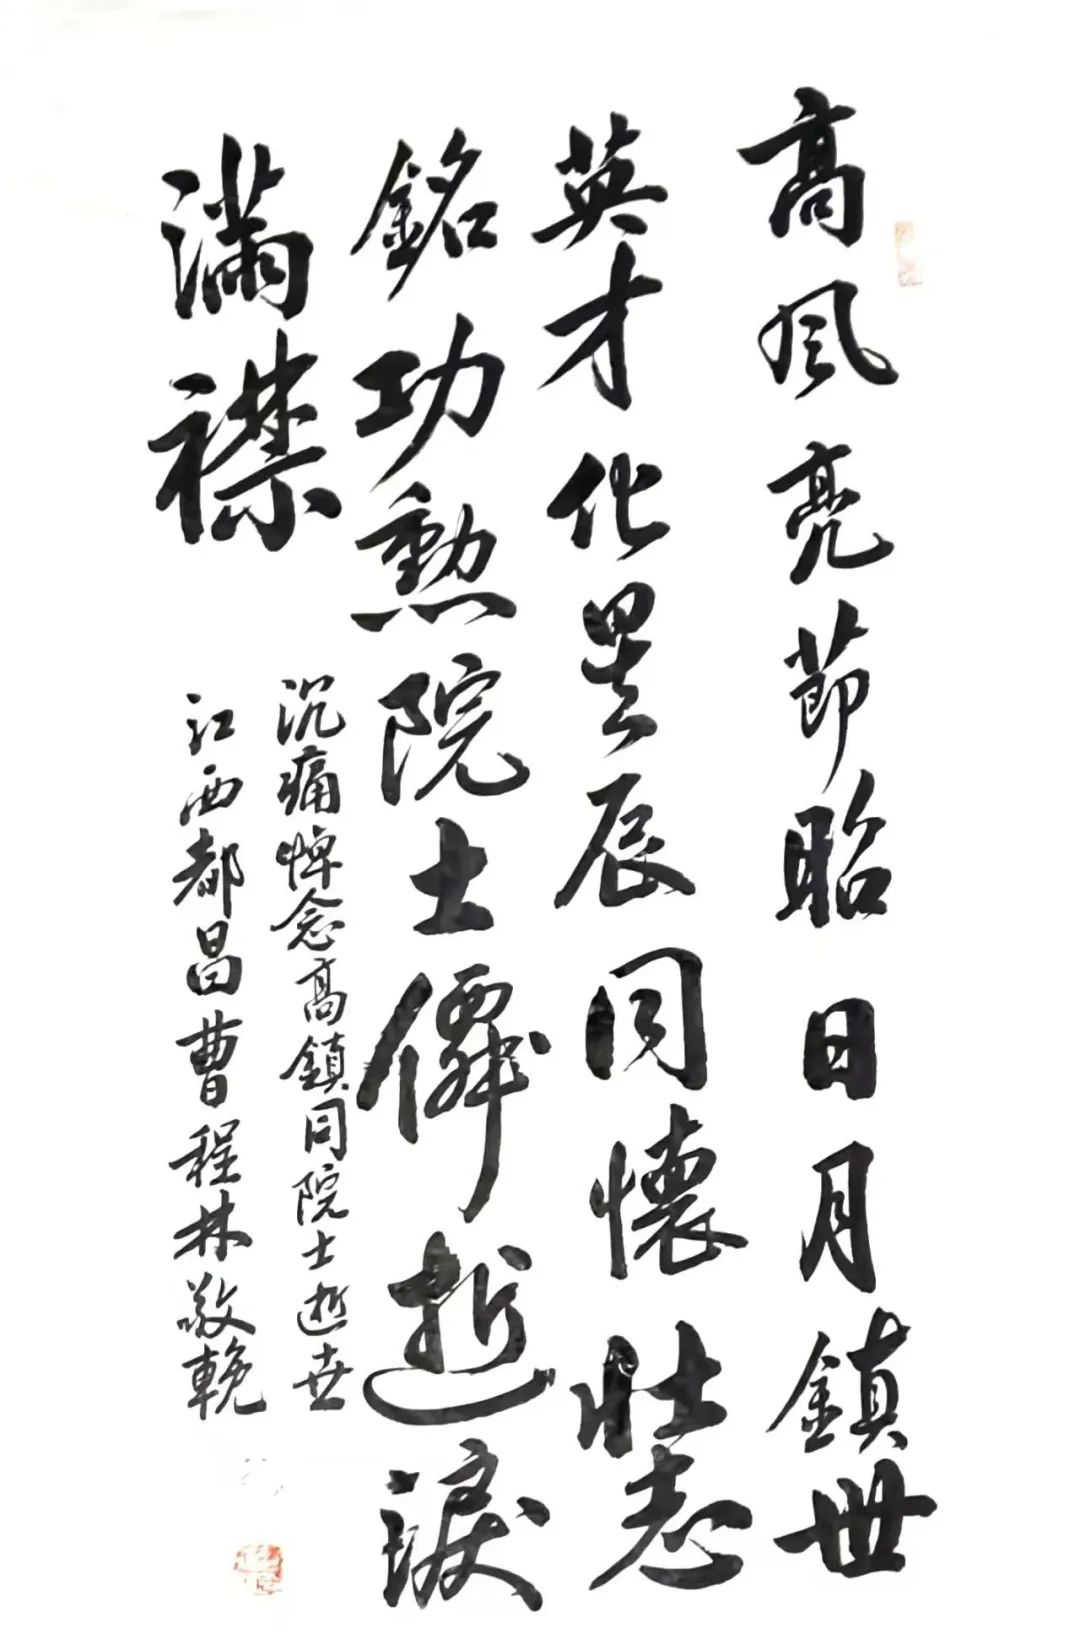 高風亮節昭日月鎮世
英才化星辰同懷壯志
銘功勲院士僊逝淚
滿襟
沉痛悼念高鎮同院士逝世
江西都昌曹程林敬輓